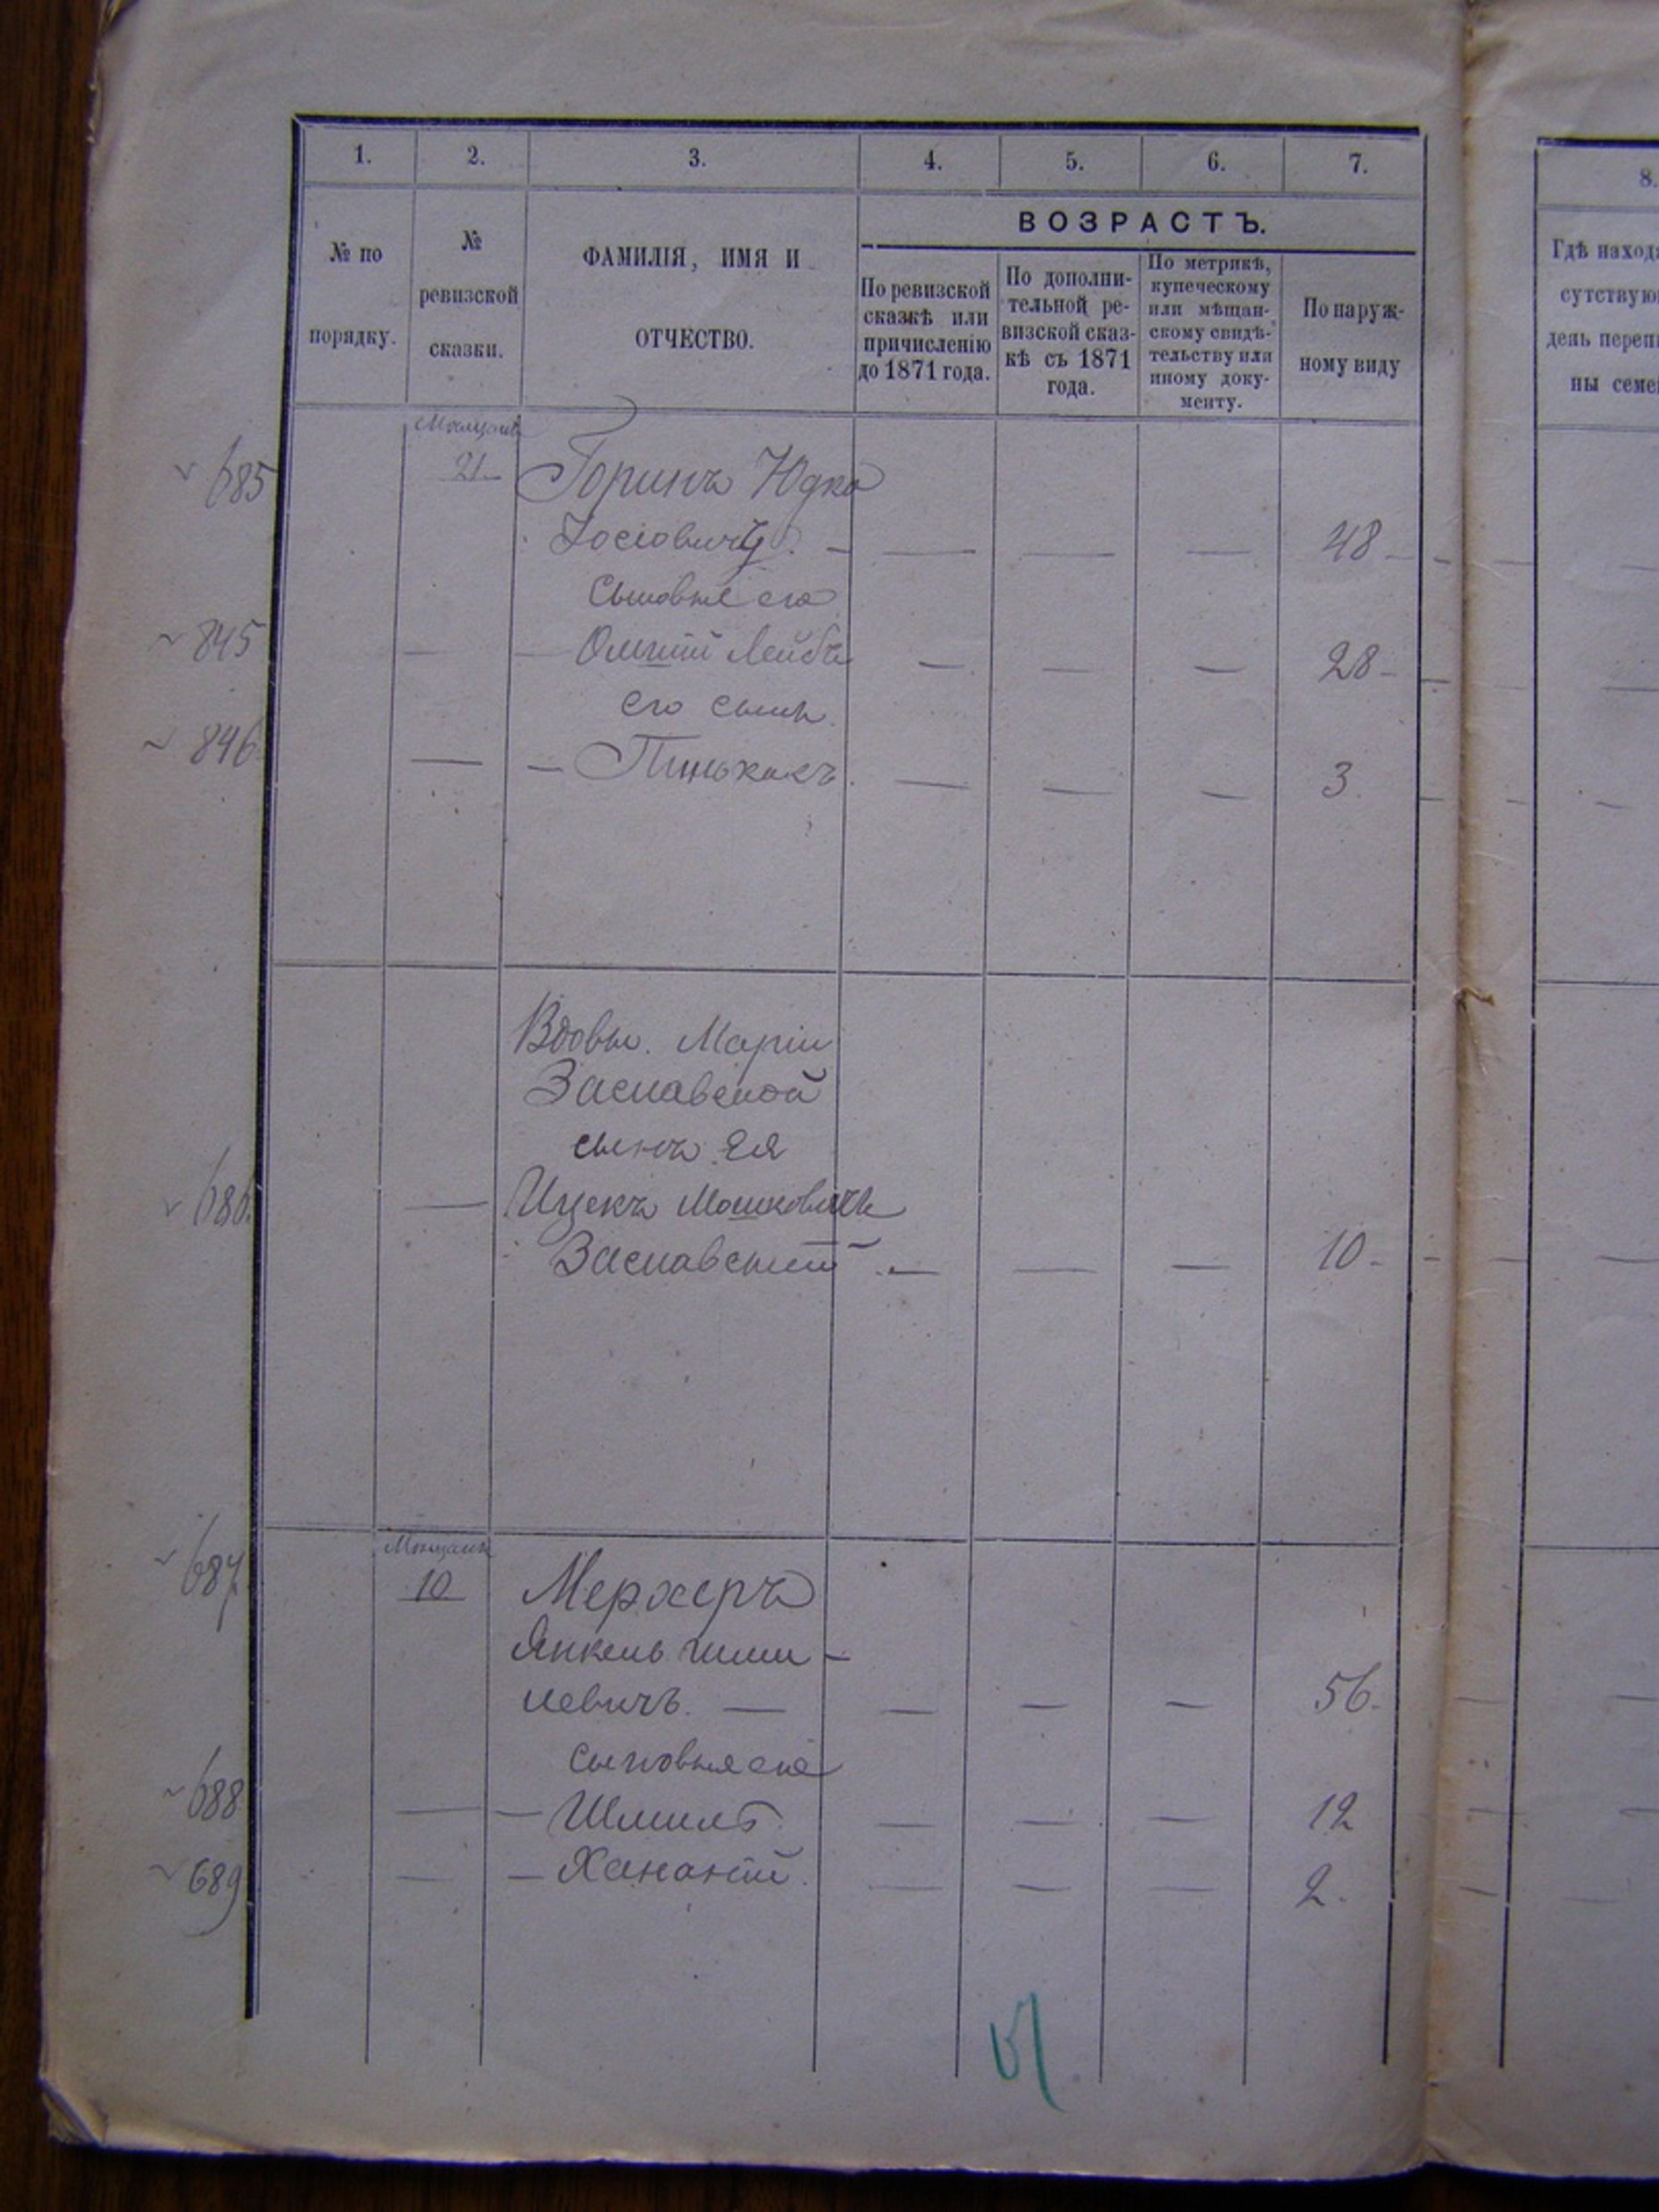 1. 2. 3. 4. 5. 6. 7.
8.
№ по
порядку.
№
ревизской
сказки.
ФАМИЛІЯ, ИМЯ И
ОТЧЕСТВО.
ВОЗРАСТЪ.
По ревизской
сказкѣ или
причисленію
до 1871 года.
По дополни-
тельной ре-
визской сказ-
кѣ съ 1871
года.
По метрикѣ,
купеческому
или мѣщан-
скому свидѣ-
тельству или
иному доку-
менту.
По наруж-
ному виду
Гдѣ наход
сутствую
день переп
ны семе
685 21 Горинъ Юдко
Іосіовичъ. — — — — 48
Сыновья его
845 — — Лейба — — — 28
его сынъ
846 — — Пинькасъ — — — 3
Вдовы Маріи
Заславской
сынъ ея
686 — Ицекъ Мошковичъ
Заславскій — — — 10
687 10 Мерхеръ
Янкель Шми-
левичъ. — — — — 56
сыновья его
688 — — Шмиль — — — 12
689 — — Хананій — — — 2